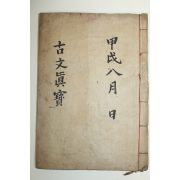 甲戌八月 日
古文眞寶